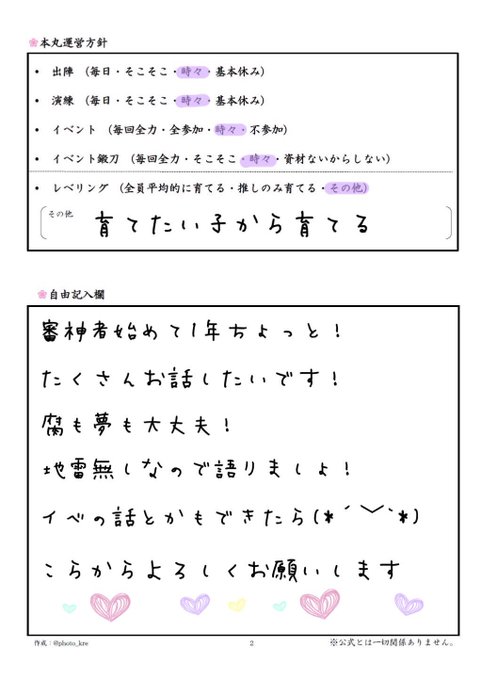 本丸運営方針
・ 出陣 (毎日・そこそこ・時々・基本休み)
・ 演練 (毎日・そこそこ・時々・基本休み)
・ イベント (毎回全力・全参加・時々・不参加)
・ イベント鍛刀 (毎回全力・そこそこ・時々・資材ないからしない)
・ レベリング (全員平均的に育てる・推しのみ育てる・その他)
その他 育てたい子から育てる
自由記入欄
審神者始めて1年ちょっと!
たくさんお話したいです!
腐も夢も大丈夫!
地雷無しなので語りましょ!
イベの話とかもできたら(*´︶`*)
こらからよろしくお願いします
作成:@photo_kre 2 ※公式とは一切関係ありません。